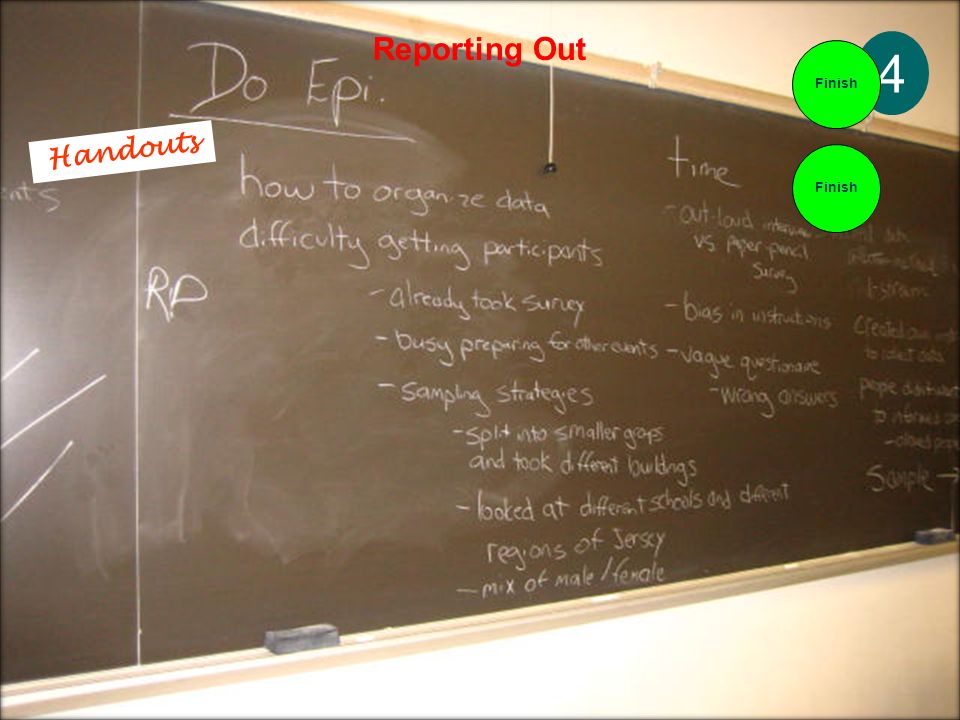 Reporting Out
4
Finish
Finish
Handouts
Do Epi.
how to organize data
difficulty getting participants
- already took survey
- busy preparing for other events
- sampling strategies
- split into smaller grops
and took different buildings
- looked at different schools and different
regions of Jersey
- mix of male/female
RD
time
- out-loud interview
vs. paper pencil
survey
- bias in instructions
- vague questionaire
- wrong answers
created own
to collect data
people didn't want
to informed
Sample →